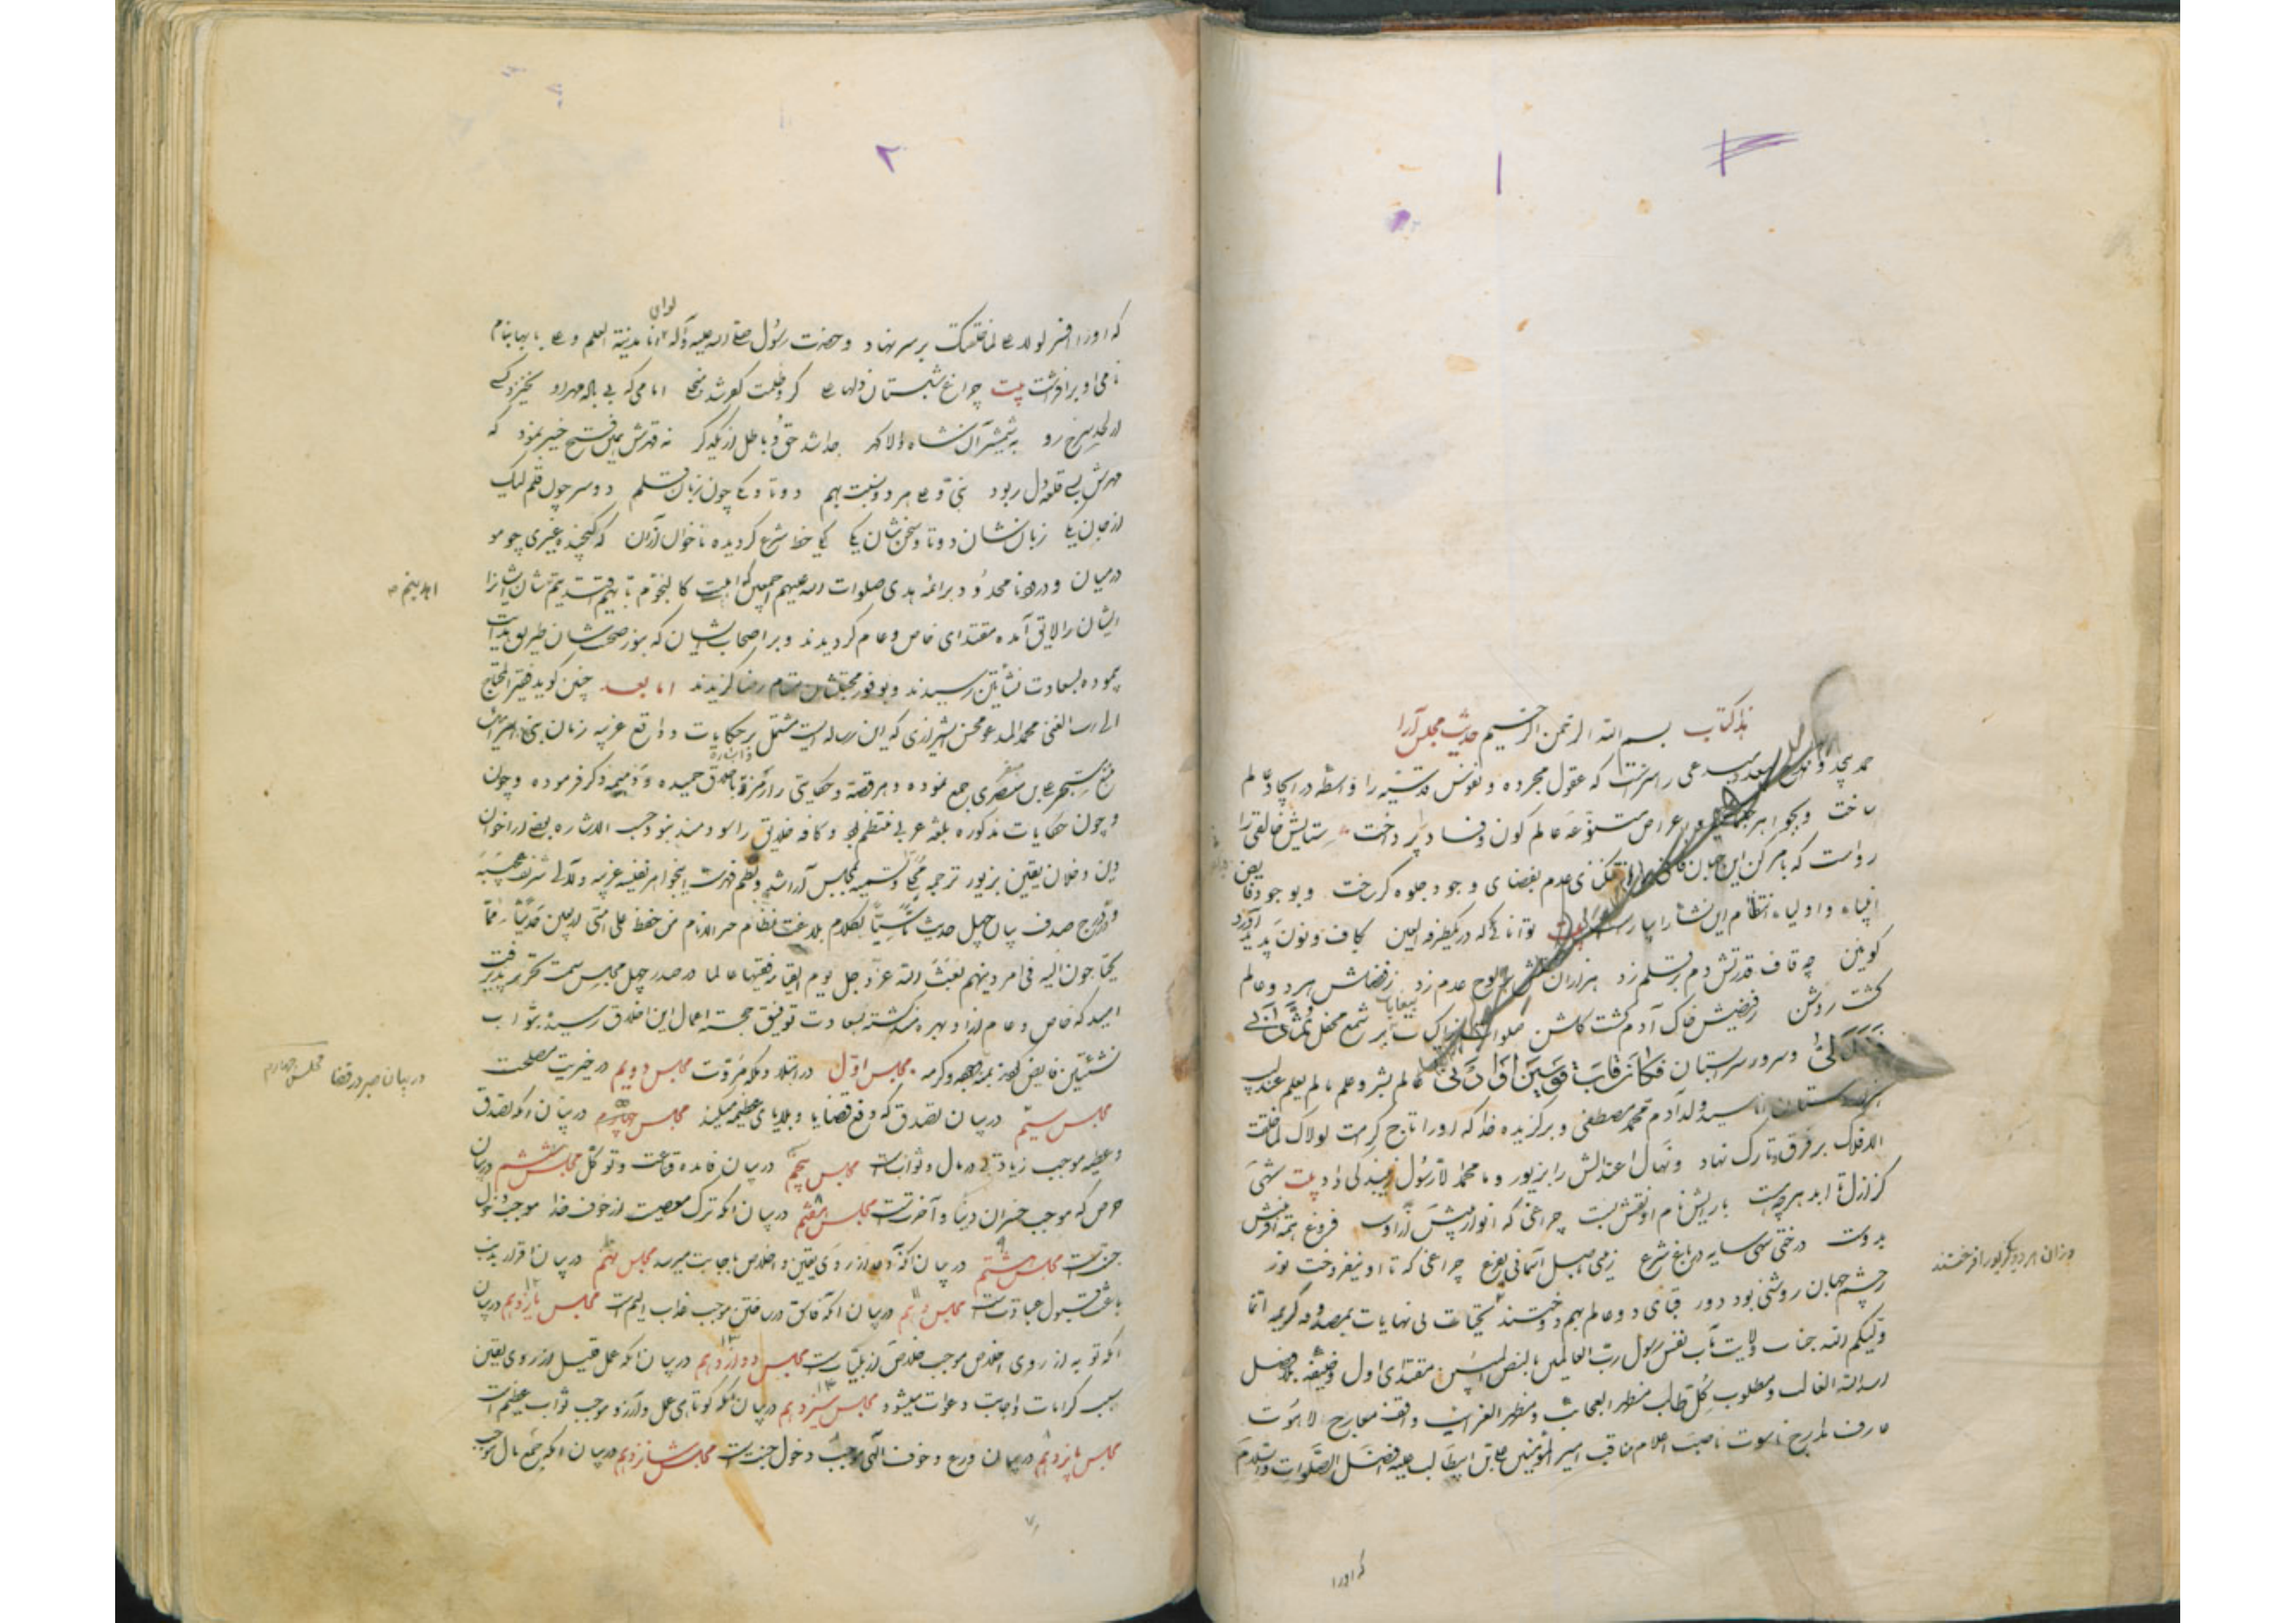 ۱
هذا کتاب بسم الله الرحمن الرحیم حدیث مجلس آرا
حمد بیحد و مدح بیعد مبدعی را سزاست که عقول مجرده و نفوس قدسیه را واسطه در ایجاد عالم
ساخت و بجواهر و اعراض متنوعه عالم کون و فساد پرداخت ستایش خالقی را
رواست که بامر کن این جهان فانی را از عدم بفضای وجود جلوه گر ساخت و بوجود فایض
انبیاء و اولیاء انتظام این نشأ را بیت توانائی که در یکطرفة العین بکاف و نون پدید آورد
کونین چه قاف قدرتش دم بر قلم زد هزاران نقش بر لوح عدم زد ز فضلش هر دو عالم
گشت روشن ز فیضش خاک آدم گشت گلشن صلوات بیغایات بر شمع محفل ثم دنی
فتدلی و سرور سرابستان فکان قاب قوسین او ادنی عالم بشر و علم مالم یعلم عندلیب
سید ولد آدم محمد مصطفی و برگزیده خدا که او را تاج کرامت لولاک لما خلقت
الافلاک بر فرق تارک نهاد و نهال اعتدالش را بزیور و ما محمد الا رسول زیبندگی داد بیت شهی
کز ازل تا ابد هر چه هست بآرایش نام او نقش بست چراغی که انوار بینش از اوست فروغ همه آفرینش
بدوست درختی سهی سایه در باغ شرع زمینی باصل آسمانی بفرع چراغی که تا او نیفروخت نور
ز چشم جهان روشنی بود دور قبای دو عالم بهم دوختند تحیات بی نهایات بمصدوقه کریمه انما
ولیکم الله جناب ولایت مآب نفس رسول رب العالمین بالنص مقتدای اول خلیفه بلا فصل
اسد الله الغالب و مطلوب کل طالب مظهر العجائب و مظهر الغرائب واقف معارج لاهوت
عارف مدارج ناسوت ناصب اعلام مناقب امیر المؤمنین علی بن ابیطالب علیه افضل الصلوات و السلام
وزان هر دو یک زیور افروختند
که او را
۲
که او را افسر لولا علی لما خلقتک بر سر نهاد و حضرت رسول صلی الله علیه و آله لوای انا مدینة العلم و علی بابها بنام
نامی او برافراشت بیت چراغ شبستان دلها علی کزو ظلمت کفر شد منجلی امامی که بی باله مهر او نخیزد کسی
از لحد سرخ رو به شمشیر آن شاه والا گهر جدا شد حق و باطل از یکدگر نه قهرش همین فتح خیبر نمود که
مهرش بسی قلعه دل ربود نبی و علی هر دو نسبت بهم دو تا و یکی چون زبان قلم دو سر چون قلم لیک
از جان یکی زبان نشان دو تا و سخن شان یکی یکی خط شرع گردیده ناخوان از آن که گنجیده غیری چو مو
در میان و درود نامحدود بر ائمه هدی صلوات الله علیهم اجمعین که اهلبیت کالنجوم بایهم اقتدیتم نشان ایشانرا
اهتدیتم
ایشان را لایق آمده مقتدای خاص و عام گردیدند و بر اصحاب ایشان که بنور صحبت شان طریق هدایت
پیموده بسعادت نشأتین رسیدند و بوفور محبتشان مقام رضا گزیدند اما بعد چنین گوید فقیر المحتاج
الی الله الغنی محمد المدعو محسن الشیرازی که این رساله ایست مشتمل بر حکایات و وقایع غریبه زمان بنی اسرائیل
جمع نموده و هر قصه و حکایتی را از باخلاق حمیده و ذمیمه ذکر فرموده و چون
و چون حکایات مذکوره بلغة عربی منتظم بود و کافه خلایق را سودمند بود حسب الاشاره بعضی از اخوان
دین و خلان یقین بزیور ترجمه محلی و تسمیه بمجلس آرا شد و نظم فهرست این جواهر نفیسه غریبه و لآلی شریفه عجیبه
و درج صدف بیان چهل حدیث تأسیا بکلام بلاغت نظام خیر الانام من حفظ علی امتی اربعین حدیثا مما
یحتاجون الیه فی امر دینهم بعثه الله عز و جل یوم القیامة فقیها عالما در صدر چهل مجلس سمت تحریر پذیرفت
امید که خاص و عام از او بهره مند گشته بسعادت توفیق حجسته اعمال این اخلاق رسیده بثواب
نشأتین فایض گردند بمنه و کرمه مجلس اول در ابتلاء و مروت مجلس دویم در خیریت مصلحت
در بیان صبر در قضا مجلس چهارم
مجلس سیم در بیان تصدق که دفع قضایا و بلایای عظیمه میکند مجلس چهارم در بیان آنکه تصدق
و عطیه موجب زیادتی در مال و ثوابست مجلس پنجم در بیان فایده قناعت و توکل مجلس ششم در بیان
حرص که موجب خسران دنیا و آخرتست مجلس هفتم در بیان آنکه ترک معصیت از خوف خدا موجب دخول
جنتست مجلس هشتم در بیان آنکه دعا از روی یقین و اخلاص باجابت میرسد مجلس نهم در بیان اقرار بذنب
باعث قبول عبادتست مجلس دهم در بیان آنکه موجب عذاب الیم است مجلس یازدهم در بیان
آنکه توبه از روی اخلاص موجب خلاصی از بلیاتست مجلس دوازدهم در بیان آنکه عمل قلیل از روی یقین
سبب کرامات و اجابت دعوات میشود مجلس سیزدهم در بیان آنکه کوتاهی عمل و آرزو موجب ثواب عظیم است
مجلس پانزدهم در بیان ورع و خوف الهی موجب دخول جنتست مجلس شانزدهم در بیان آنکه جمع مال موجب